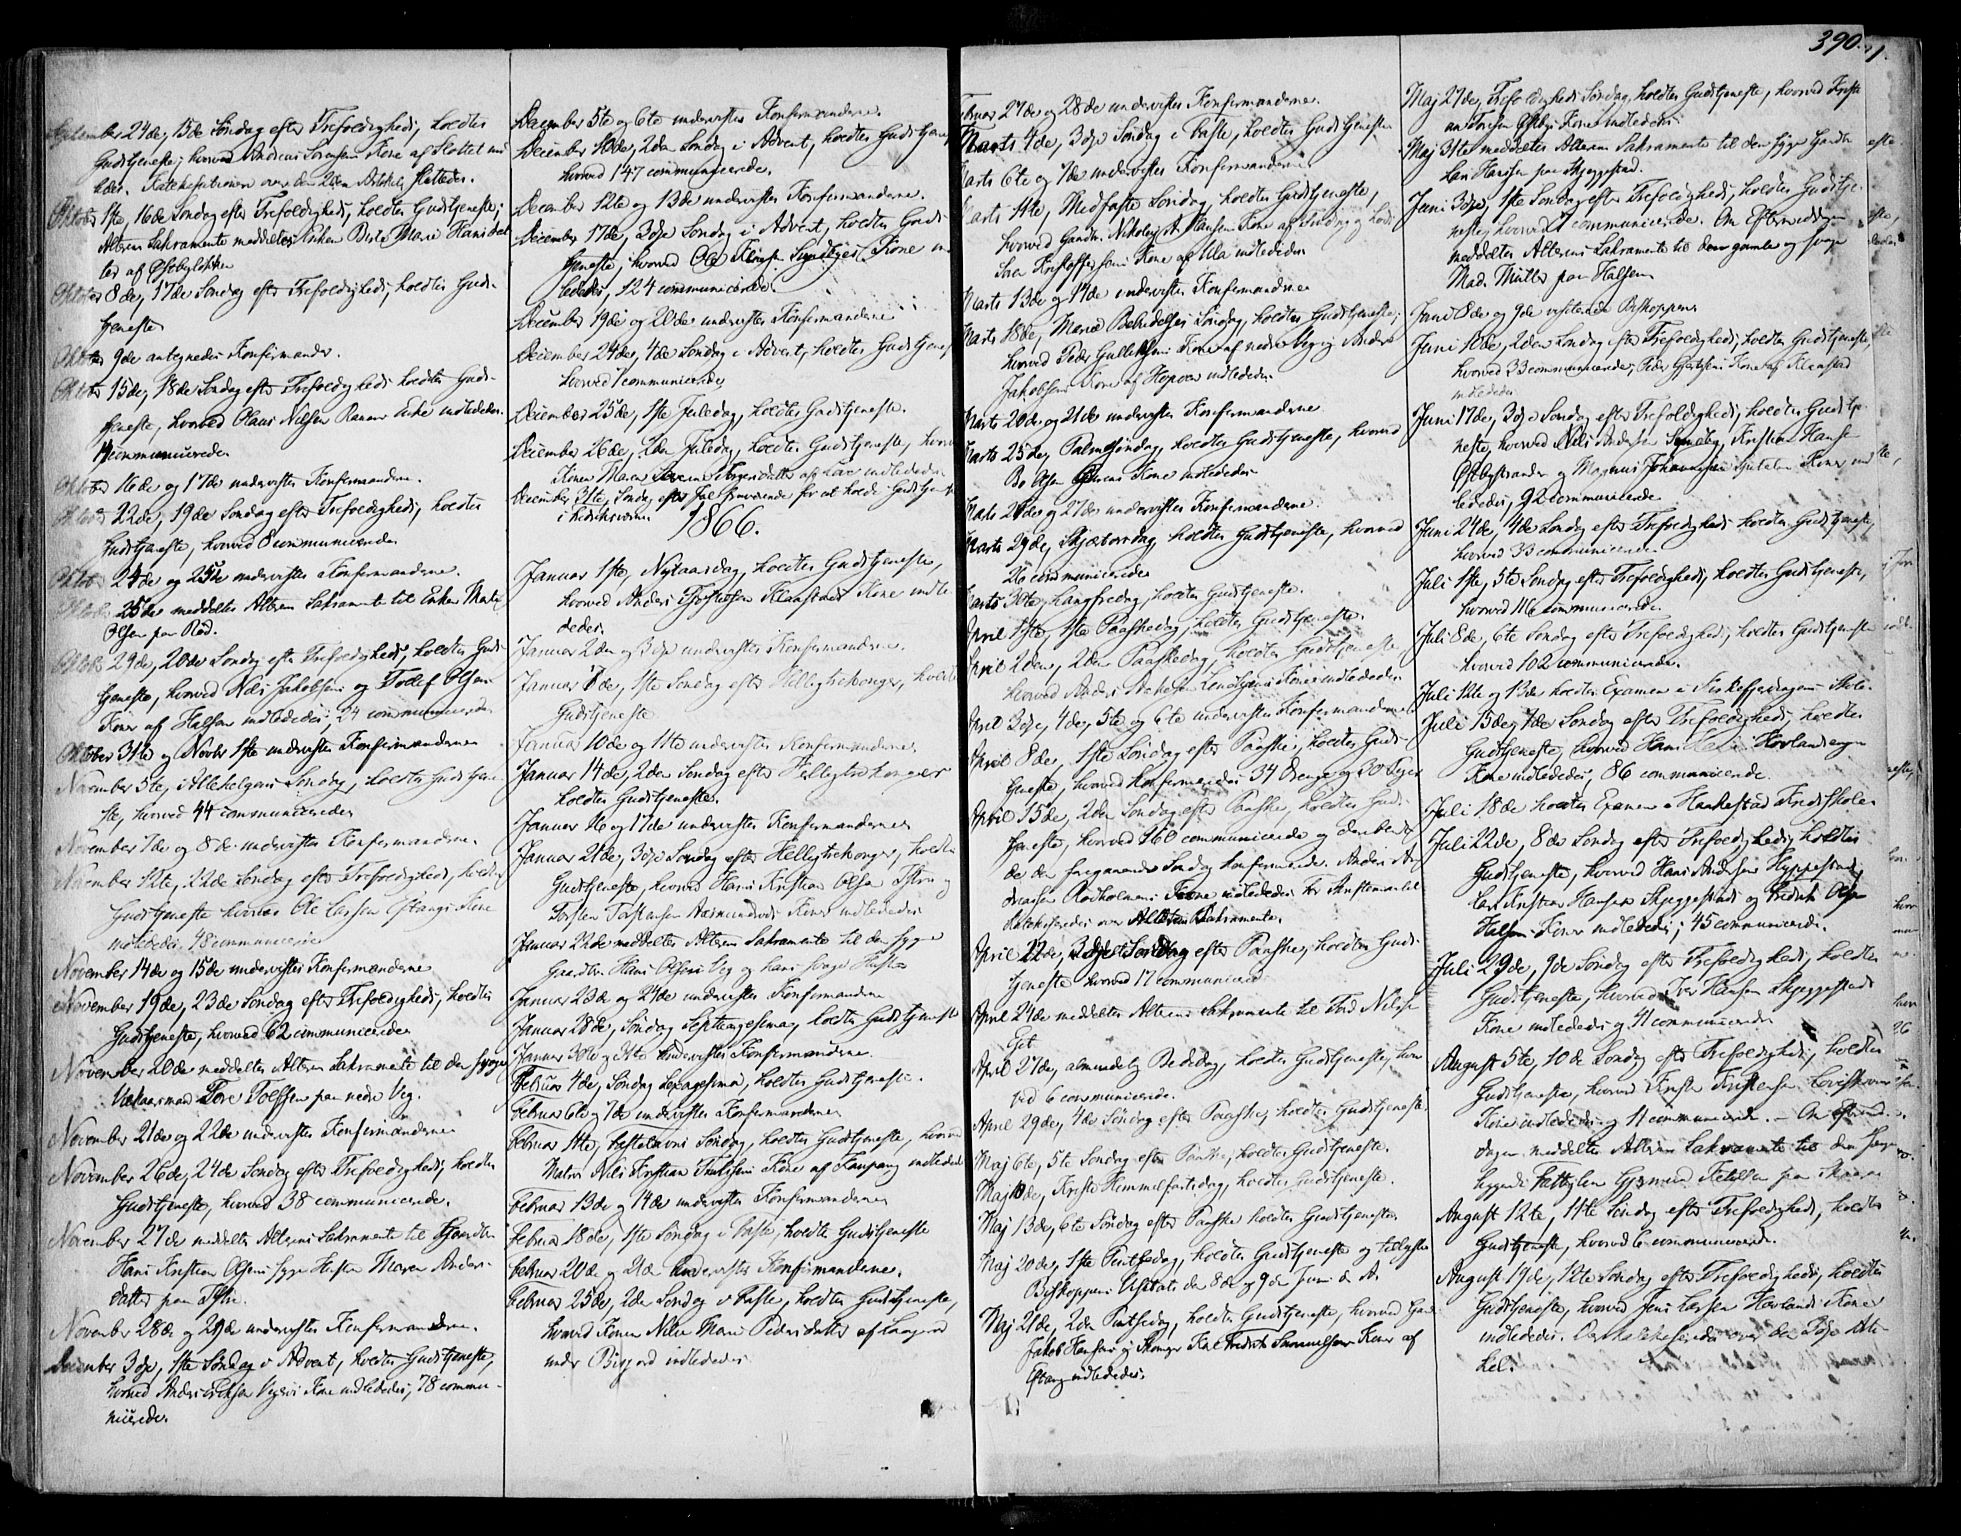 September 24de, 15de Søndag efter Trefoldighed, holdtes
Gudstjeneste, hvorved Andreas Sørensens Kone af Slottet ind
ledes. Katekisationen over den 2den Artikel sluttedes.
Oktober 1ste, 16de Søndag efter Trefoldighed, holdtes Gudstjeneste;
Alterens Sakramente meddeltes Enken Marie Hansdat
ter af Østbyløkken
Oktober 8de, 17de Søndag efter Trefoldighed, holdtes Guds-
tjeneste
Oktober 9de antegnedes Konfirmander.
Oktober 15de, 18de Søndag efter Trefoldighed holdtes Guds-
tjeneste, hvorved Olaus Nilsen Enke indledtes.
communicerede
Oktober 16de og 17de undervistes Konfirmanderne.
Oktober 22de, 19de Søndag efter Trefoldighed, holdtes
Gudstjeneste, hvorved 8 communicerede
Oktob 24de og 25de undervistes Konfirmanderne.
Oktober 25de meddeltes Alterens Sakramente til Enken
Olsen paa Rød.
Oktob 29de, 20de Søndag efter Trefoldighed, holdtes Guds-
tjeneste, hvorved Jakobsens og Tollef Olsens
Koner af Halsen indlededes; 24 communicerede
Oktober 31te og Novbr 1ste undervistes Konfirmanderne
November 5te, Allehelgens Søndag, holdtes Gudstjene-
ste, hvorved 44 communicerede
November 7de og 8de undervistes Konfirmanderne.
November 12te, 22de Søndag efter Trefoldighed, holdtes
Gudstjeneste hvorved Ole Larsen Kone
indlededes, 48 communicerede
November 14de og 15de undervistes Konfirmanderne
November 19de, 23de Søndag efter Trefoldighed, holdtes
Gudstjeneste, hvorved 62 communicerede
November 20de meddeltes Alterens Sakramente til den syge
Tore Tolfsen paa nedre Veg.
November 21de og 22de undervistes Konfirmanderne
November 26de, 24de Søndag efter Trefoldighed, holdtes
Gudstjeneste, hvorved 38 communicerede.
November 27de meddeltes Alterens Sakramente til Gaardbr
Hans Kristian Olsens syge Hustru Maren Anders-
datter paa
November 28de og 29de undervistes Konfirmanderne.
December 3dje, 1ste Søndag i Advent, holdtes Gudstjeneste,
hvorved Anders Kone indlededes, 78 commu-
nicerede.
December 5te og 6te undervistes Konfirmanderne.
December 10de, 2den Søndag i Advent, holdtes Gudstjeneste
hvorved 147 communicerede.
December 12te og 13de undervistes Konfirmanderne.
December 17de, 3dje Søndag i Advent, holdtes Guds-
tjeneste, hvorved Ole Kone ind
lededes, 124 communicerede.
December 19de og 20de undervistes Konfirmanderne
December 24de, 4de Søndag i Advent, holdtes Gudstjeneste
hvorved 1 communicerede
December 25de, 1ste Juledag, holdtes Gudstjeneste.
December 26de, 2den Juledag, holdtes Gudstjeneste, hvorv
Konen Maren Jørgensdatter af indlededes
December 31te, Søndag efter Jul fraværende for at holde Gudstjeneste
i Fredriksværn
1866.
Januar 1ste, Nytaarsdag, holdtes Gudstjeneste,
hvorved Anders Klaastads Kone indle
dedes.
Januar 2den og 3dje undervistes Konfirmanderne.
Januar 7de, 1ste Søndag efter Helligtrekonger, holdtes
Gudstjeneste
Januar 10de og 11te undervistes Konfirmanderne.
Januar 14de, 2den Søndag efter Helligtrekonger
holdtes Gudstjeneste.
Januar 16 og 17de undervistes Konfirmanderne
Januar 21de, 3dje Søndag efter Helligtrekonger, holdtes
Gudstjeneste, hvorved Hans Kristian Olsen og
Torsten Torstensen Koner indlededes
Januar 22de meddeltes Alterens Sakramente til den syge
Gaardbr. Hans Olsens Veg og hans syge Hustru
Januar 23de og 24de undervistes Konfirmanderne
Januar 28de, Søndag Septuagesima, holdtes Gudstjeneste
Januar 30te og 31te undervistes Konfirmanderne.
Februar 4de, Søndag Sexagesima, holdtes Gudstjeneste.
Februar 6te og 7de undervistes Konfirmanderne
Februar 11te, Fastelavns Søndag, holdtes Gudstjeneste, hvorved
Matros Nils Kristian Kone af Kaupang indlededes
Februar 13de og 14de undervistes Konfirmanderne
Februar 18de, 1ste Søndag i Faste, holdtes Gudstjeneste
Februar 20de og 21de undervistes Konfirmanderne.
Februar 25de, 2den Søndag i Faste, holdtes Gudstjeneste,
hvorved Konen Marie Pedersdatter af
under indlededes
390.
Februar 27de og 28de undervistes Konfirmanderne.
Marts 4de, 3dje Søndag i Faste, holdtes Gudstjeneste
Marts 6te og 7de undervistes Konfirmanderne
Marts 11te, Midfaste Søndag, holdtes Gudstjeneste,
hvorved Gaardbr. Nikolay A. Hansens Kone af og
Kristoffersens Kone af Ula indlededes
Marts 13de og 14de undervistes Konfirmanderne
Marts 18de, Mariæ Bebudelses Søndag, holdtes Gudstjeneste;
hvorved Peder Gulliksens Kone af nedre Veg og Anders
Jakobsens Kone af indlededes
Marts 20de og 21de undervistes Konfirmanderne
Marts 25de, Palmesøndag, holdtes Gudstjeneste, hvorved
Bo Olsen Kone indlededes
Marts 26de og 27de undervistes Konfirmanderne.
Marts 29de, Skjærtorsdag, holdtes Gudstjeneste, hvorved
26 communicerede
Marts 30te, Langfredag, holdtes Gudstjeneste.
April 1ste, 1ste Paaskedag, holdtes Gudstjeneste.
April 2den, 2den Paaskedag, holdtes Gudstjeneste,
hvorved Anders Kone indlededes
April 3dje, 4de, 5te og 6te undervistes Konfirmanderne
April 8de, 1ste Søndag efter Paaske, holdtes Guds-
tjeneste, hvorved konfirmeredes 34 Drenge og 30 Piger
April 15de, 2den Søndag efter Paaske, holdtes Guds-
tjeneste, hvorved 160 communicerede og deriblandt
de den foregaaende Søndag konfirmerede. Anders An
dreasen Rødholmens Kone indlededes.
Katekiseredes over Alterens Sakramente.
April 22de, 3dje Søndag efter Paaske, holdtes Guds-
tjeneste hvorved 17 communicerede
April 24de meddeltes Alterens Sakramente til Nilsen
April 27de, almindelig Bededag, holdtes Gudstjeneste, hvor
ved 6 communicerede.
April 29de, 4de Søndag efter Paaske, holdtes Gudstjeneste.
Maj 6te, 5te Søndag efter Paaske, holdtes Gudstjeneste.
Maj 10de, Kristi Himmelfartsdag, holdtes Gudstjeneste.
Maj 13de, 6te Søndag efter Paaske holdtes Gudstjeneste
Maj 20de, 1ste Pintsedag, holdtes Gudstjeneste og tillystes
Biskoppens Visitats den 8de og 9de Juni d. A.
Maj 21de, 2den Pintsedag, holdtes Gudstjeneste, hvorved
Jakob Hansens og Fredrik Samuelsens Koner af
indlededes.
Maj 27de, Trefoldigheds Søndag, holdtes Gudstjeneste, hvorved Kristi
an Torsens Østbys Kone indlededes.
Maj 31te meddeltes Alterens Sakramente til den syge Gaardbr
Lars Hansen paa Skjeggestad.
Juni 3dje, 1ste Søndag efter Trefoldighed, holdtes Gudstje-
neste, hvorved communicerede. Om Eftermiddagen
meddeltes Alterens Sakramente til den gamle og svage
Mad. Müller paa Halsen
Juni 8de og 9de visiterede Biskoppen
Juni 10de, 2den Søndag efter Trefoldighed, holdtes Gudstjeneste,
hvorved 33 communicerede, Peder Gjertsens Kone af Klaastad
indlededes
Juni 17de, 3dje Søndag efter Trefoldighed, holdtes Gudstje-
neste, hvorved Nils Andersen Kristian Hansen
Østbystranden og Magnus Johannesens Koner ind
lededes, 92 communicerede
Juni 24de, 4de Søndag efter Trefoldighed holdtes Gudstjeneste,
hvorved 33 communicerede.
Juli 1ste, 5te Søndag efter Trefoldighed, holdtes Gudstjeneste,
hvorved 116 communicerede.
Juli 8de, 6te Søndag efter Trefoldighed, holdtes Gudstjeneste
hvorved 102 communicerede.
Juli 12te og 13de holdtes Examen i
Juli 15de, 7de Søndag efter Trefoldighed, holdtes
Gudstjeneste, hvorved Hans Hovlands
Kone indlededes, 86 communicerede.
Juli 18de holdtes Examen i Haakestad Kredsskole
Juli 22de, 8de Søndag efter Trefoldighed, holdtes
Gudstjeneste, hvorved Hans Andersen
Lars Kristian Hansen Skjeggestad og Fredrik Olsen
Halsen Koner indlededes; 45 communicerede.
Juli 29de, 9de Søndag efter Trefoldighed, holdtes
Gudstjeneste, hvorved Iver Hansen Skjeggestads
Kone indlededes og 41 communicerede
August 5te, 10de Søndag efter Trefoldighed, holdtes
Gudstjeneste, hvorved Kristensen
Kone indlededes og 11 communicerede. — Om Eftermid-
dagen meddeltes Alterens Sakramente til den
liggende Fattiglem Ketilsen paa
August 12te, 11te Søndag efter Trefoldighed, holdtes
Gudstjeneste, hvorved 6 communicerede.
August 19de, 12te Søndag efter Trefoldighed, holdtes
Gudstjeneste, hvorved Jens Larsen Hovlands Kone
indlededes. Der katekiseredes over den 3dje Arti-
kel.